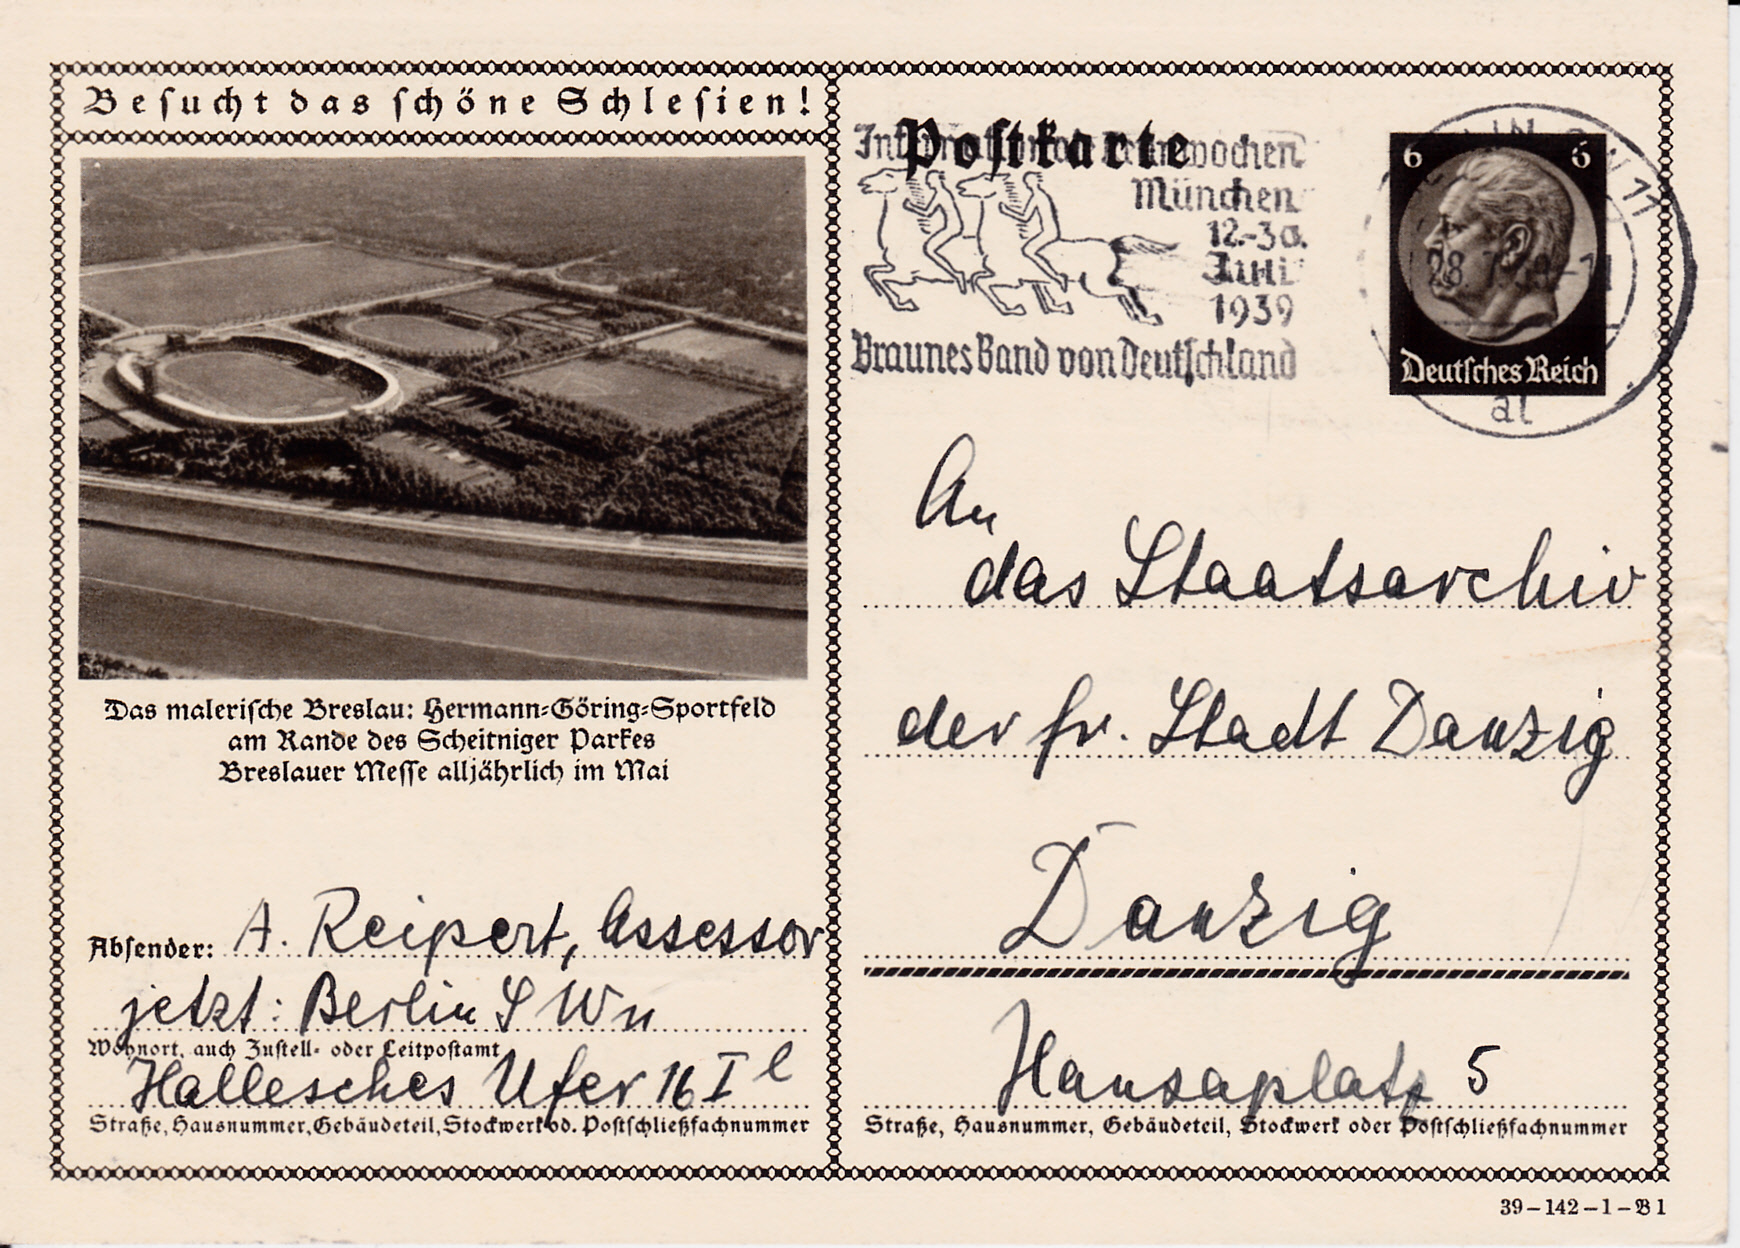 Besucht das schöne Schlesien!
Das malerische Breslau: Hermann-Göring-Sportfeld
am Rande des Scheitniger Parkes
Breslauer Messe alljährlich im Mai
Absender: A. Reipert, Assessor
jetzt: Berlin SW 11
Wohnort, auch Zustell- oder Leitpostamt
Hallesches Ufer 16 I l
Straße, Hausnummer, Gebäudeteil, Stockwerk od. Postschließfachnummer
Postkarte
Internationale Rennwochen
München
12.-30.
Juli
1939
Braunes Band von Deutschland
6 6
Deutsches Reich
BERLIN SW 11
al
An
das Staatsarchiv
der fr. Stadt Danzig
Danzig
Hansaplatz 5
Straße, Hausnummer, Gebäudeteil, Stockwerk oder Postschließfachnummer
39-142-1-B1